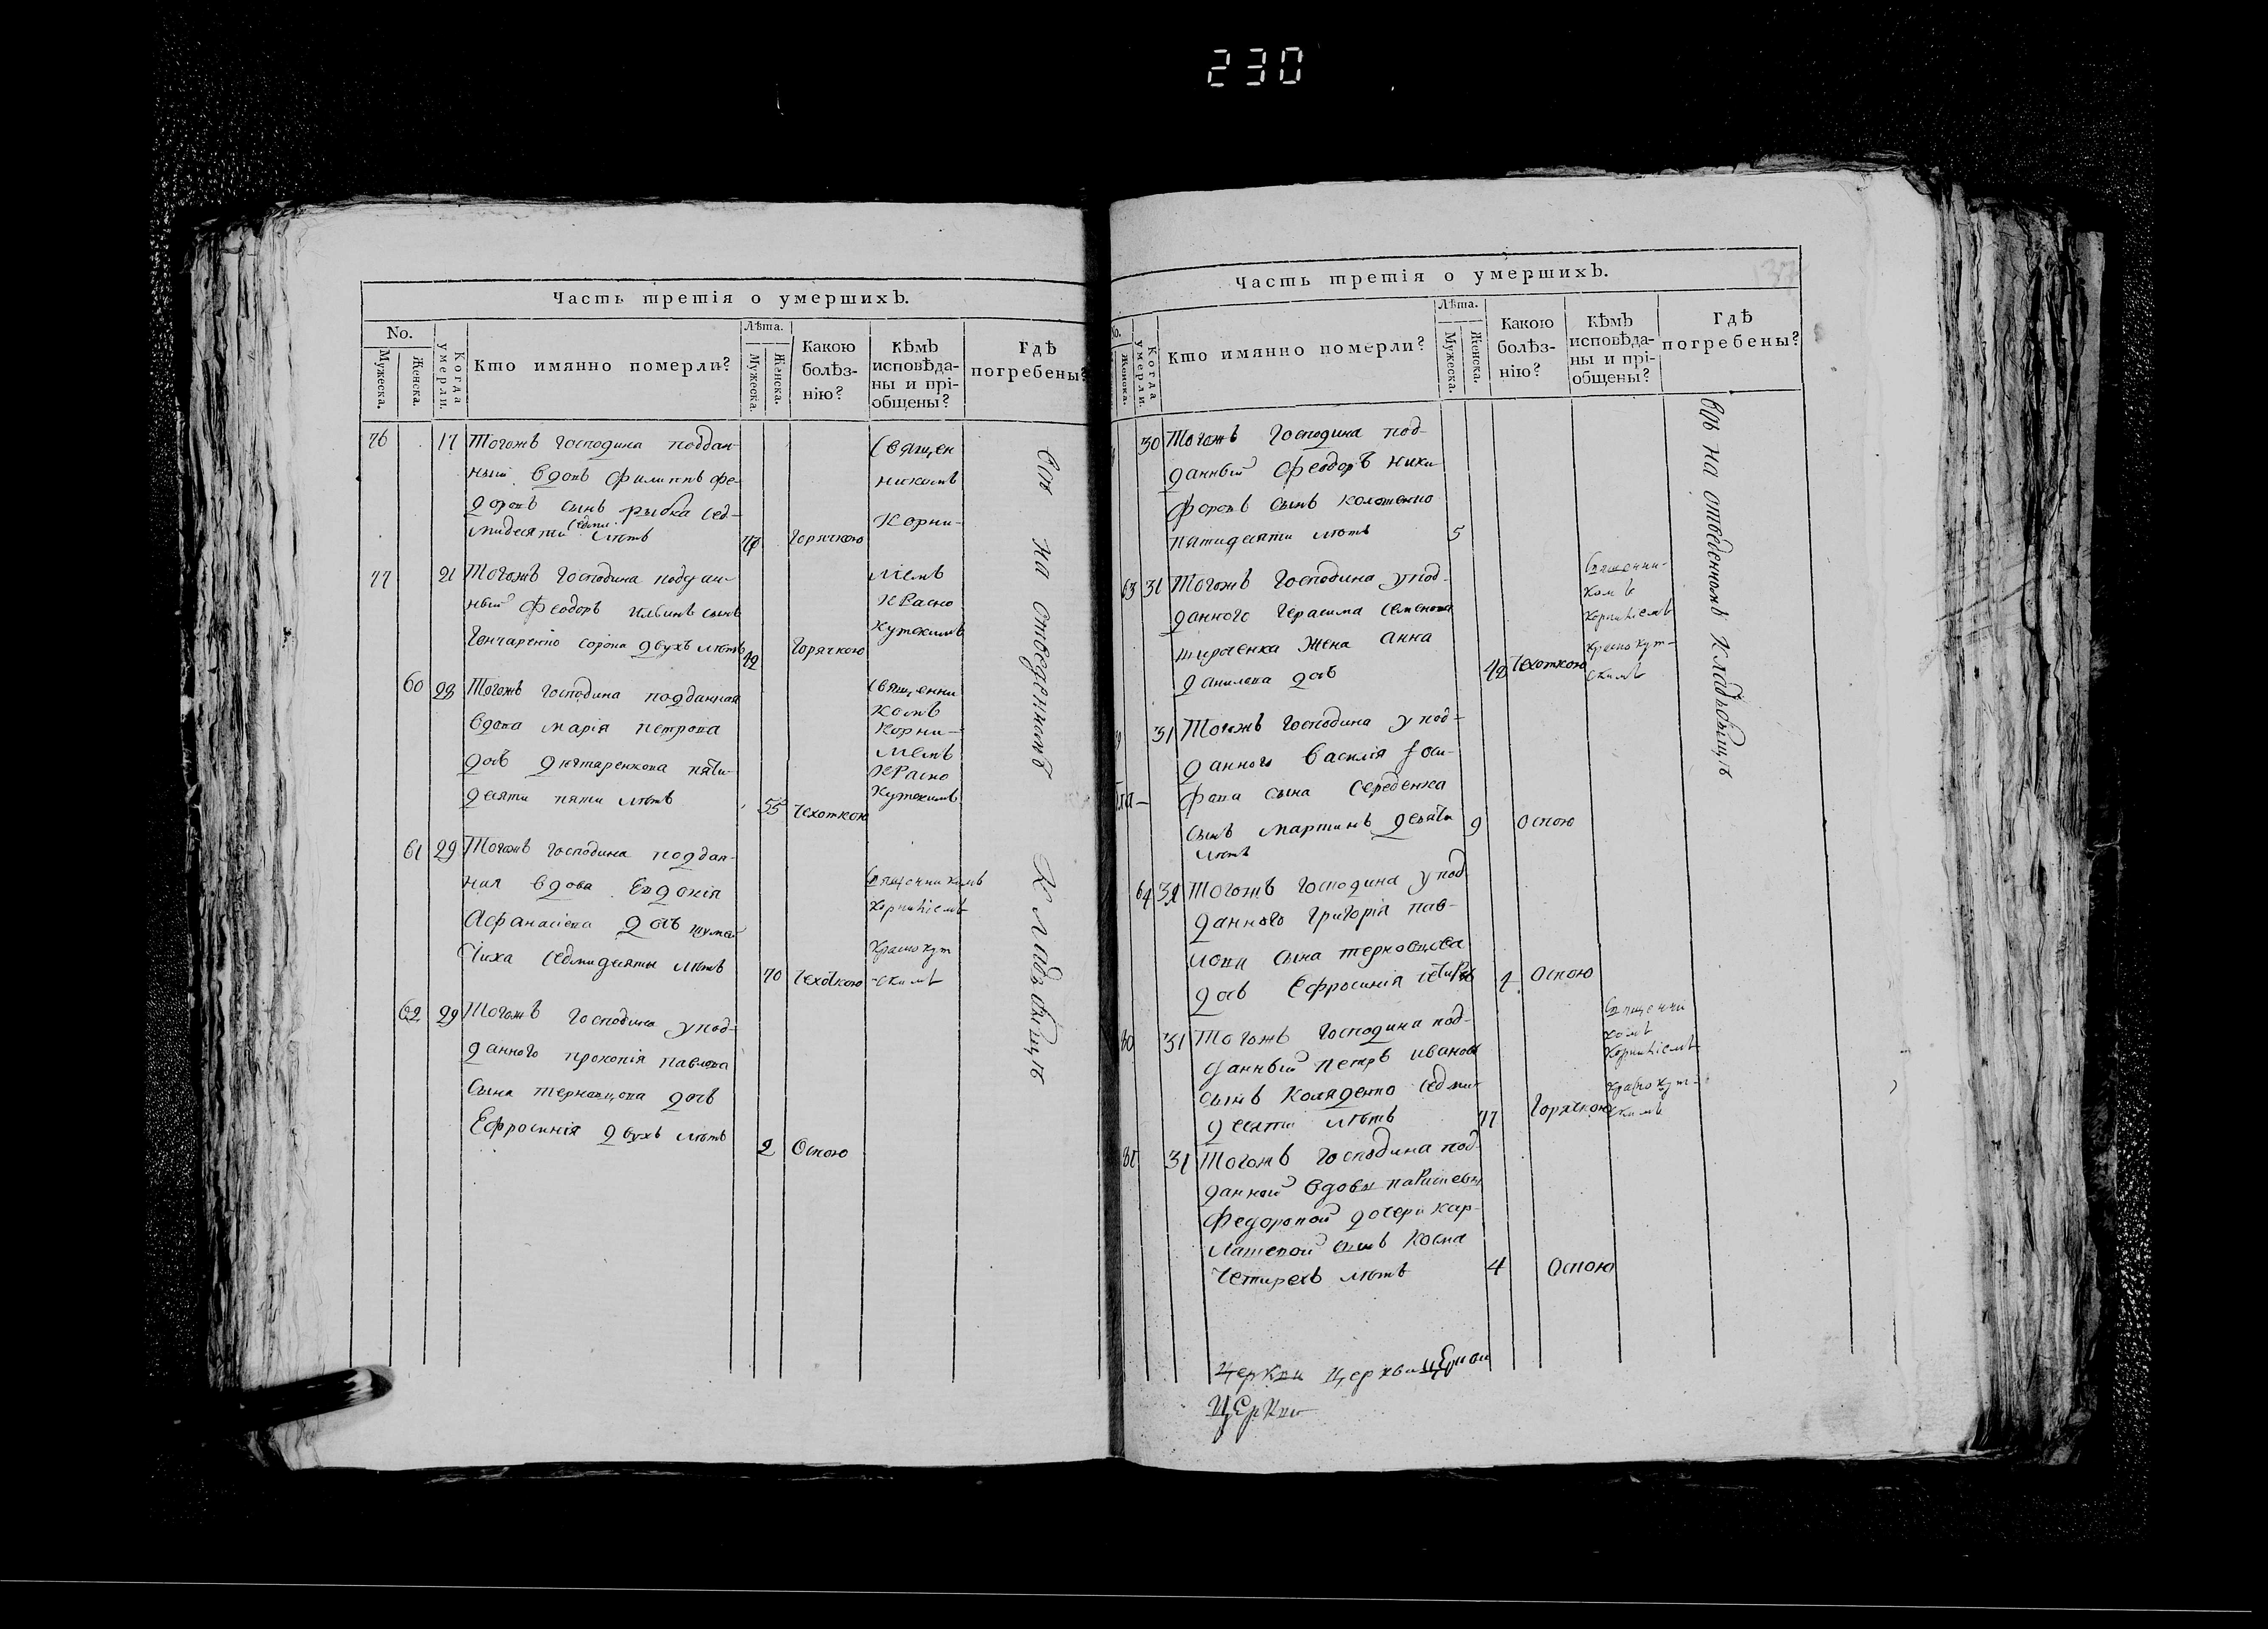 230
Часть третія о умершихъ.
No.
Мужеска.
Женска.
Когда умерли.
Кто имянно померли?
Лѣта.
Мужеска.
Женска.
Какою болѣз-
нію?
кѣмъ
исповѣда-
ны и прі-
общены?
гдѣ
погребены?
76 17 Тогожъ Господина поддан-
ный вдовъ Филиппъ Фе-
доровъ сынъ Рыбка сед-
мидесяти седми лѣтъ
Горячкою
Священ
никомъ
Корни-
77 21 Тогожъ Господина поддан-
ный Феодоръ Ильинъ сынъ
Гончаренко сорока двухъ лѣтъ 42 Горячкою
ліемъ
Красно
кутскимъ
60 23 Тогожъ Господина подданная
вдова Марія Петрова
дочь Дихтаренкова пяти-
десяти пяти лѣтъ 55 Чехоткою
Священни
комъ
Корни-
ліемъ
Красно
кутскимъ
61 29 Тогожъ Господина поддан-
ная вдова Евдокія
Афанасіева дочь
седмидесяти лѣтъ 70 Чехоткою
Священникомъ
Корниліемъ
Краснокут
скимъ
62 29 Тогожъ Господина у под-
данного Прокопія Павлова
сына Терновцова дочь
Ефросинія двухъ лѣтъ 2 Оспою
Всѣ на отведенномъ кладбыщѣ
Часть третія о умершихъ.
No.
Женска.
Когда умерли.
Кто имянно померли?
Лѣта.
Мужеска.
Женска.
Какою
болѣз-
нію?
кѣмъ
исповѣда-
ны и прі-
общены?
гдѣ
погребены?
30 Тогожъ Господина под-
данный Феодоръ Ники-
форовъ сынъ
пятидесяти лѣтъ 5
63 31 Тогожъ Господина у под-
данного Герасима Семенова
жена Анна
Данилова дочь 42 Чехоткою
Священни-
комъ
Корниліемъ
Краснокут-
скимъ
31 Тогожъ Господина у под-
данного Василія Іоси-
фова сына Середенка
сынъ Мартинъ девяти 9 Оспою
лѣтъ
64 31 Тогожъ Господина у под
данного Григорія Пав-
лова сына Терновцова
дочь Ефросинія 4 Оспою
80 31 Тогожъ Господина под-
данный Петръ Ивановъ
сынъ Коляденко седми-
десяти лѣтъ Горячкою
Священни
комъ
Корниліемъ
Краснокут-
скимъ
81 31 Тогожъ Господина под-
данной вдовы
Федоровой дочери Кар-
лашевой сынъ Косма
Четирехъ лѣтъ 4 Оспою
Всѣ на отведенномъ кладбыщѣ
Церкви Церкви Церкви
Церкви